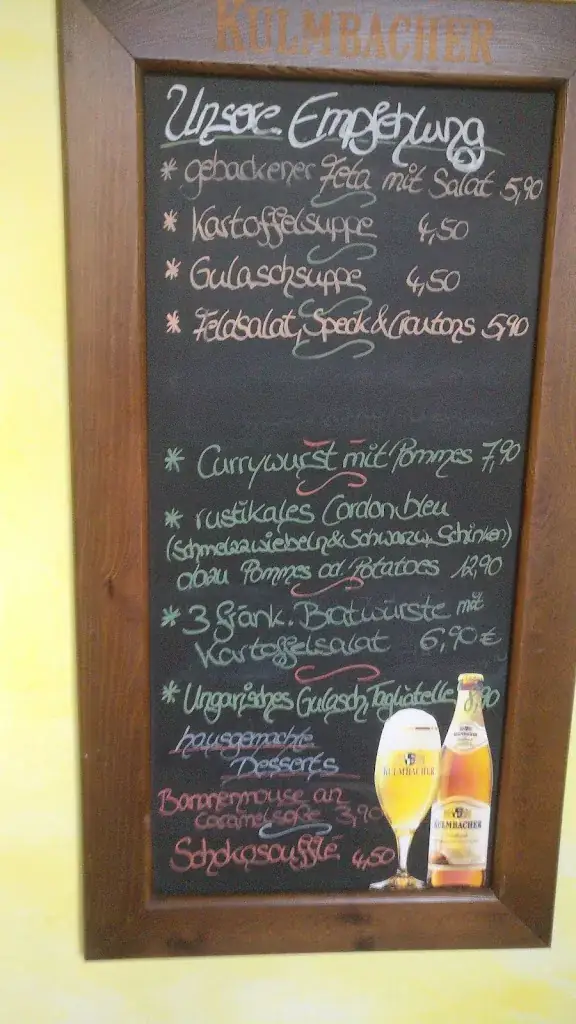 KULMBACHER
Unsere Empfehlung
* gebackener Feta mit Salat 5,90
* Kartoffelsuppe 4,50
* Gulaschsuppe 4,50
* Feldsalat, Speck & Croutons 5,90
* Currywurst mit Pommes 7,90
* rustikales Cordon bleu
(Schmelzzwiebeln & Schwarzw. Schinken)
dazu Pommes od Potatoes 12,90
* 3 fränk. Bratwürste mit
Kartoffelsalat 6,90 €
* Ungarisches Gulasch, Tagliatelle 8,90
hausgemachte
Desserts
Bananenmouse an
Caramelsoße 3,90
Schokosoufflé 4,50
KULMBACHER
KULMBACHER